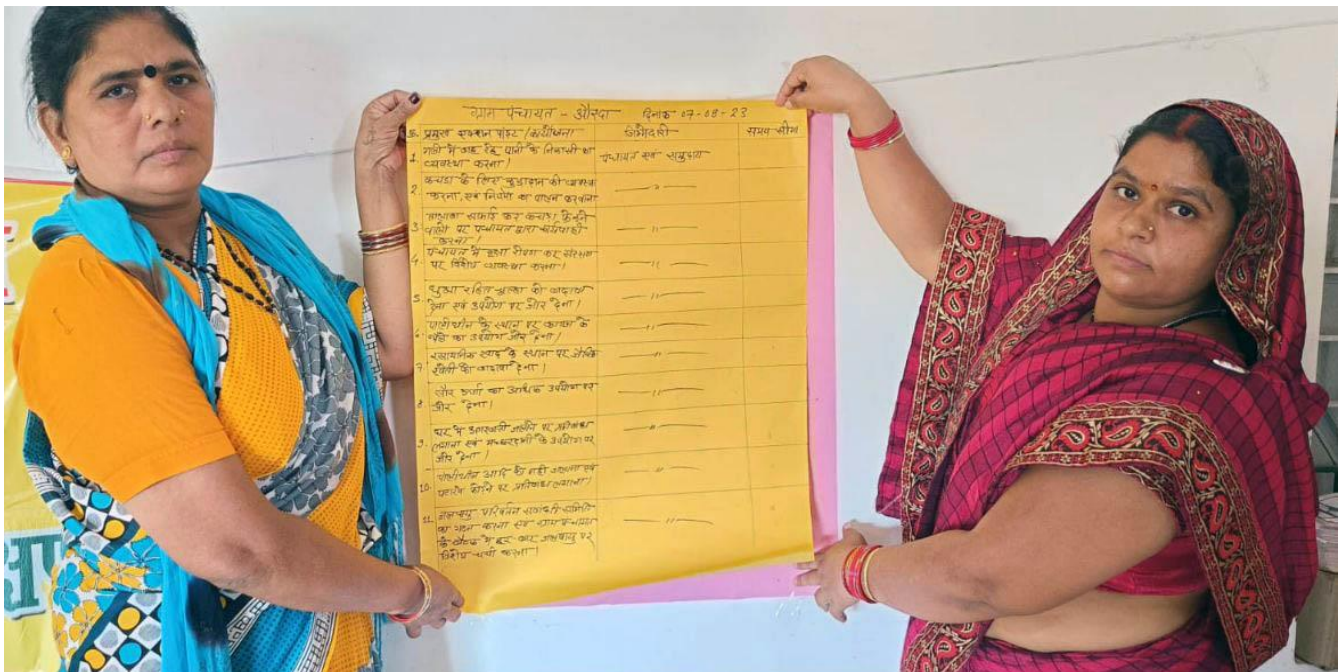 ग्राम पंचायत - औरदा दिनांक 07-09-23
क्र. प्रमुख एक्शन पाइंट / कार्ययोजना जिम्मेदारी समय सीमा
1. गली में बह रहे पानी के निकासी का पंचायत एवं समुदाय
व्यवस्था करना।
2. कचडा के लिए कुडादान की व्यवस्था —〃—
करना, एवं नियमों का पालन करवाना
3. साफ सफाई कर कचडा फेंकने —〃—
वालों पर पंचायत द्वारा कार्यवाही
करना।
4. पंचायत में वृक्षा रोपण कर संरक्षण —〃—
पर विशेष व्यवस्था करना।
5. धुआ रहित चुल्हा को बढावा —〃—
देना एवं उपयोग पर जोर देना।
6. पालीथीन के स्थान पर कागज के —〃—
थैले का उपयोग जोर देना।
7. रसायनिक खाद के स्थान पर जैविक —〃—
खेती को बढावा देना।
8. सौर ऊर्जा का अधिक उपयोग पर —〃—
जोर देना।
9. घर में अगरबत्ती जलाने पर प्रतिबंध —〃—
लगाना एवं मच्छरदानी के उपयोग पर
जोर देना।
10. पालीथीन आदि को नही जलाना एवं —〃—
पटाखे फोडने पर प्रतिबंध लगाना।
11. जलवायु परिवर्तन समिति —〃—
का गठन करना एवं ग्राम पंचायत
के बैठक में हर बार जलवायु पर
विशेष चर्चा करना।